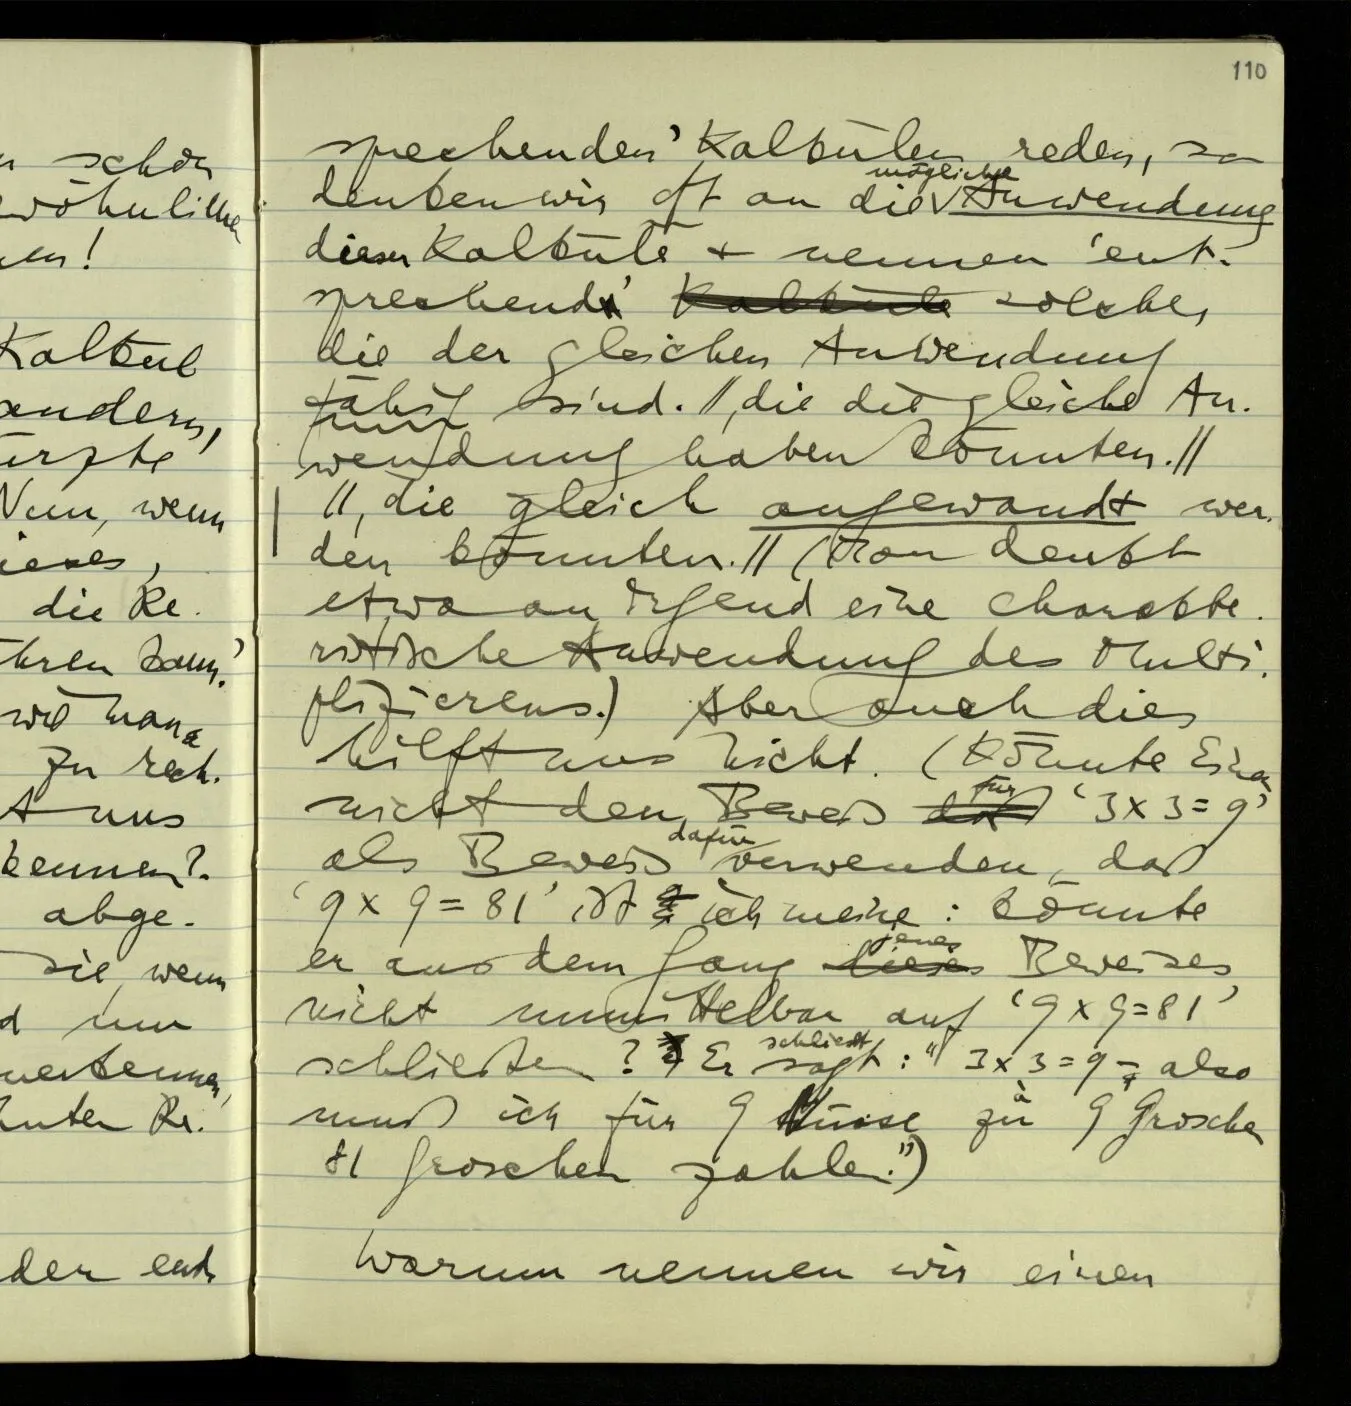 110
n schon
wöhnliche
en!
Kalkül
andern,
ürzte
Nun, wenn
ieses,
die Re-
hren kann.'
wie man
zu rech-
t uns
kennen?
abge-
sie, wenn
d nun
nnten Re-
der ent-
sprechenden' Kalkülen reden, so
denken wir oft an die mögliche Anwendung
dieser Kalküle + nennen 'ent-
sprechend' Kalküle solche,
die der gleichen Anwendung
fähig sind. //, die die gleiche An-
wendung haben könnten. //
//, die gleich angewandt wer-
den könnten. // (Man denkt
etwa an irgend eine charakte-
ristische Anwendung des Multi-
plizierens.) Aber auch dies
hilft uns nicht. (Könnte Einer
nicht den Beweis für '3 x 3 = 9'
als Beweis dafür verwenden, daß
'9 x 9 = 81' ist ich meine: könnte
er aus dem Gang dieses jenes Beweises
nicht unmittelbar auf '9 x 9 = 81'
schließen? Er sagt schließt: "3 x 3 = 9 – also
muß ich für 9 Nüsse zu à 9 Groschen
81 Groschen zahlen.")
Warum nennen wir einen